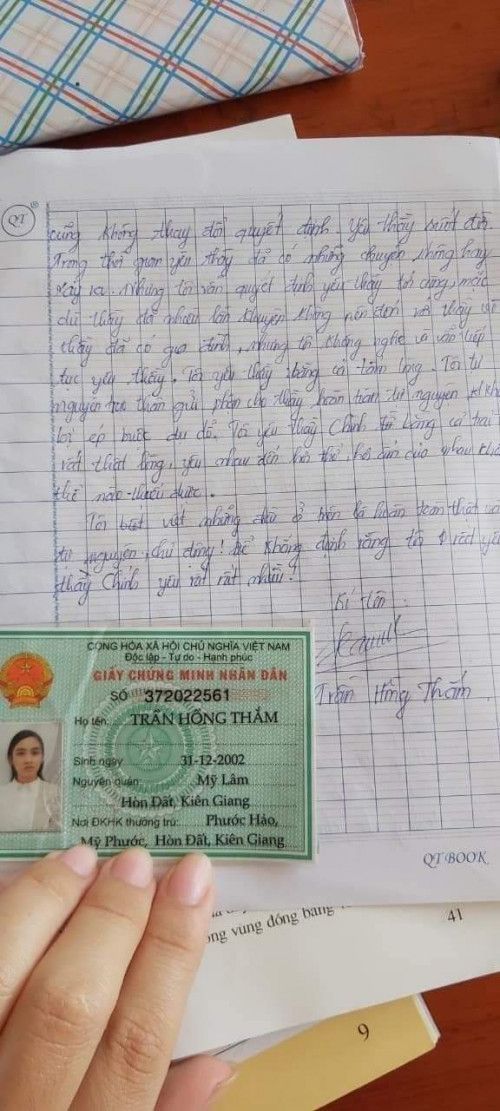 QT
cũng không thay đổi quyết định. Yêu thầy suốt đời.
Trong thời gian yêu thầy đã có những chuyện không hay
xảy ra. Nhưng tôi vẫn quyết định yêu thầy tới cùng, mặc
dù thầy đã nhiều lần khuyên không nên đến với thầy vì
thầy đã có gia đình, nhưng tôi không nghe và vẫn tiếp
tục yêu thầy. Tôi yêu thầy bằng cả tấm lòng. Tôi tự
nguyện trao thân gửi phận cho thầy hoàn toàn tự nguyện
ép buộc dụ dỗ. Tôi yêu thầy Chính tôi bằng cả trái
rất thật lòng, yêu nhau đến
thế nào thiếu được.
Tôi viết những điều ở trên là hoàn toàn thật và
tự nguyện, chủ động! Để khẳng định rằng tôi rất yêu
thầy Chính yêu rất rất nhiều!
Kí tên
Trần Hồng Thắm
CỘNG HÒA XÃ HỘI CHỦ NGHĨA VIỆT NAM
Độc lập - Tự do - Hạnh phúc
GIẤY CHỨNG MINH NHÂN DÂN
SỐ 372022561
Họ tên: TRẦN HỒNG THẮM
Sinh ngày 31-12-2002
Nguyên quán: Mỹ Lâm
Hòn Đất, Kiên Giang
Nơi ĐKHK thường trú: Phước Hảo,
Mỹ Phước, Hòn Đất, Kiên Giang
QT BOOK
vùng đồng bằng
41
9